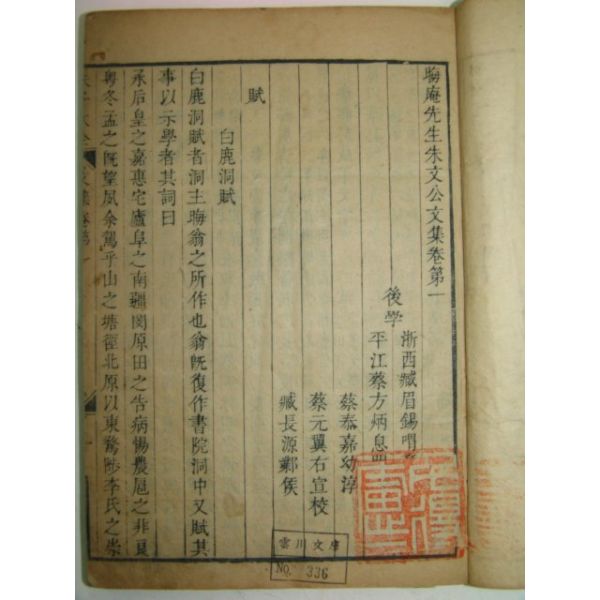 晦庵先生朱文公文集卷第一
後學
浙西臧眉錫喟
平江蔡方炳息
蔡泰嘉幼淳
蔡元翼右宣校
臧長源鄴侯
賦
白鹿洞賦
白鹿洞賦者洞主晦翁之所作也翁既復作書院洞中又賦其
事以示學者其詞曰
承后皇之嘉惠宅廬阜之南疆閔原田之告病惕農扈之非良
粵冬孟之既望夙余駕乎山之塘徑北原以東騖陟李氏之崇
文集卷第一
雲川文庫
No. 336